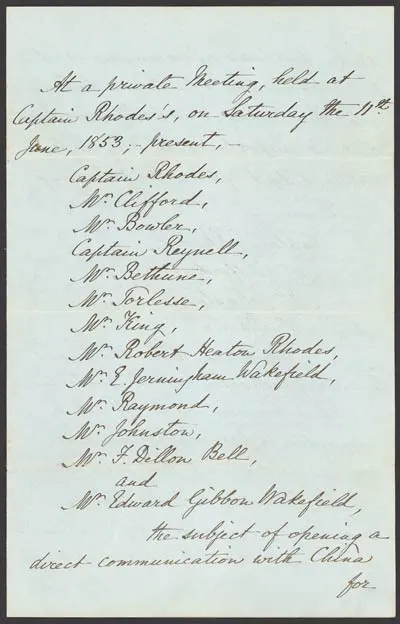 At a private Meeting, held at
Captain Rhodes's, on Saturday the 11th
June, 1853; - present, -
Captain Rhodes,
Mr. Clifford,
Mr. Bowler,
Captain Reynell,
Mr. Bethune,
Mr. Torlesse,
Mr. King,
Mr. Robert Heaton Rhodes,
Mr. E. Jerningham Wakefield,
Mr. Raymond,
Mr. Johnston,
Mr. F. Dillon Bell,
and
Mr. Edward Gibbon Wakefield,
the subject of opening a
direct communication with China
for